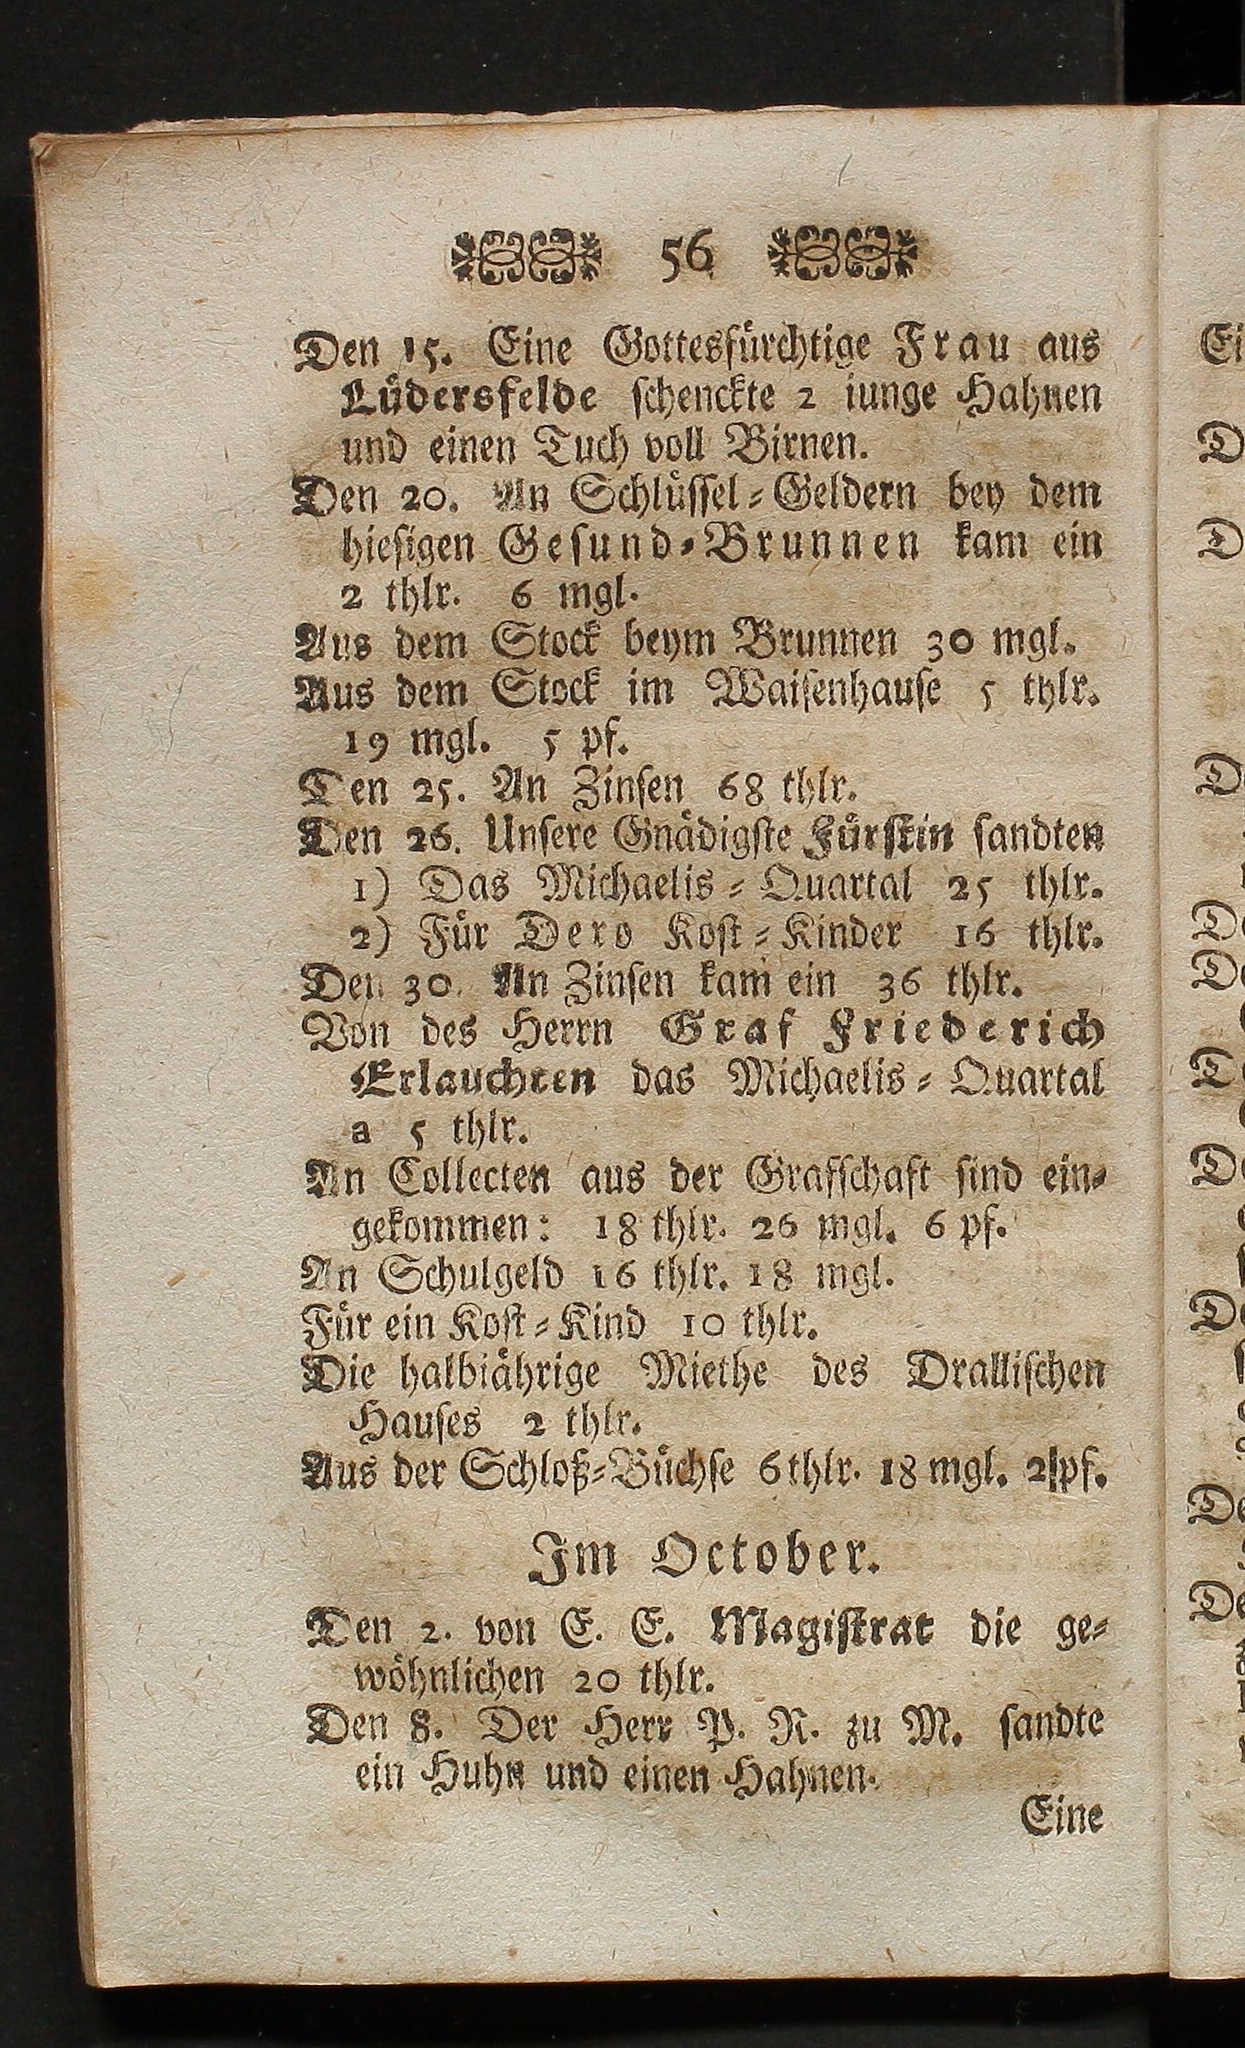 56
Den 15. Eine Gottesfürchtige Frau aus
Lüdersfelde schenckte 2 iunge Hahnen
und einen Tuch voll Birnen.
Den 20. An Schlüssel-Geldern bey dem
hiesigen Gesund-Brunnen kam ein
2 thlr. 6 mgl.
Aus dem Stock beym Brunnen 30 mgl.
Aus dem Stock im Waisenhause 5 thlr.
19 mgl. 5 pf.
Den 25. An Zinsen 68 thlr.
Den 26. Unsere Gnädigste Fürstin sandten
1) Das Michaelis-Quartal 25 thlr.
2) Für Dero Kost-Kinder 16 thlr.
Den 30. An Zinsen kam ein 36 thlr.
Von des Herrn Graf Friederich
Erlauchten das Michaelis-Quartal
a 5 thlr.
An Collecten aus der Grafschaft sind ein-
gekommen: 18 thlr. 26 mgl. 6 pf.
An Schulgeld 16 thlr. 18 mgl.
Für ein Kost-Kind 10 thlr.
Die halbiährige Miethe des Drallischen
Hauses 2 thlr.
Aus der Schloß-Büchse 6 thlr. 18 mgl. 2 pf.
Im October.
Den 2. von E. E. Magistrat die ge-
wöhnlichen 20 thlr.
Den 8. Der Herr P. R. zu M. sandte
ein Huhn und einen Hahnen.
Eine